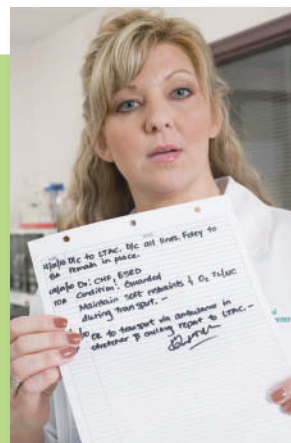 D/C to LTAC. D/C all lines. Foley to
remain in place.
Dx: CHF, ESRD
10A Condition: Guarded
Maintain soft restraints & O2 2L/NC
during transport. -
OK to transport via ambulance in
stretcher report to LTAC. -